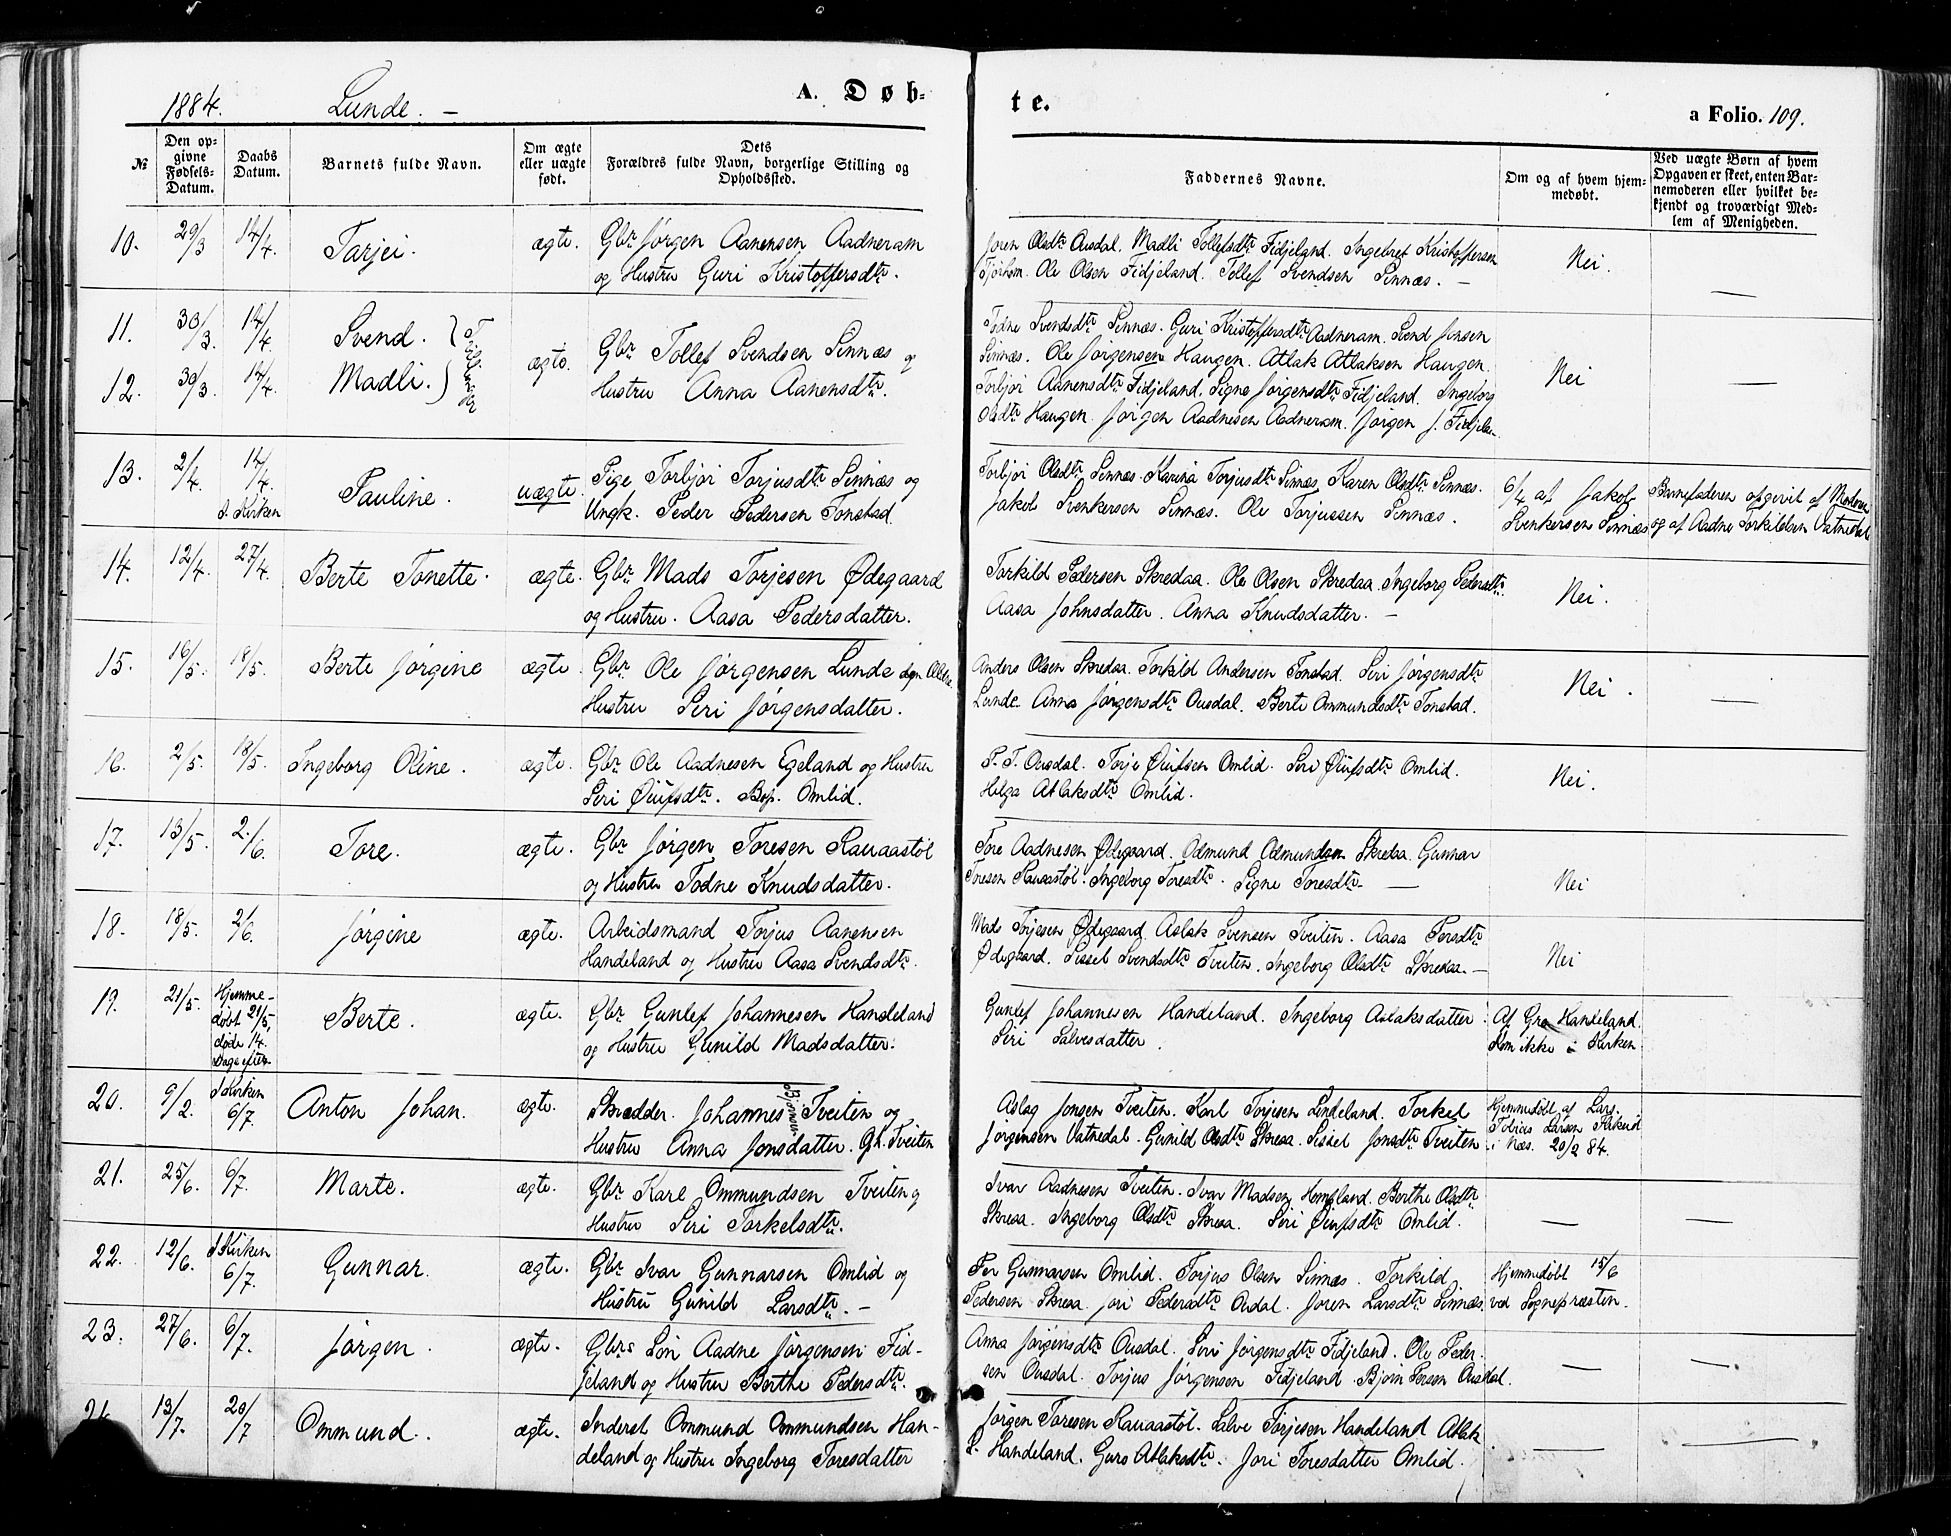 1884. Lunde. —
A. Døb-
te.
a Folio. 109.
№
Den op-
givne
Fødsels-
Datum.
Daabs
Datum.
Barnets fulde Navn.
Om ægte
eller uægte
født.
Dets
Forældres fulde Navn, borgerlige Stilling og
Opholdssted.
Faddernes Navne.
Om og af hvem hjem-
medøbt.
Ved uægte Børn af hvem
Opgaven er skeet, enten Bar-
nemoderen eller hvilket be-
kjendt og troværdigt Med-
lem af Menigheden.
10. 29/3 14/4. Tarjei. ægte. Gbr. Jørgen Aanensen Aadneram
og Hustru Guri Kristoffersdtr.
Joren Olsdtr Ousdal. Madli Tollefsdtr Fidjeland. Ingebret Kristoffersen
Tjørhom. Ole Olsen Fidjeland. Tollef Svendsen Sinnæs. —
Nei. —
11. 30/3. 14/4 Svend. } Tvillinger
12. 30/3. 14/4. Madli. }
ægte. Gbr. Tollef Svendsen Sinnæs og
Hustru Anna Aanensdtr.
Todne Svendsdtr Sinnæs. Guri Kristoffersdtr Aadneram. Svend Jonsen
Sinnæs. Ole Jørgensen Haugen. Atlak Atlaksen Haugen.
Torbjør Aanensdtr Fidjeland. Signe Jørgensdtr Fidjeland. Ingeborg
Olsdtr Haugen. Jørgen Aadnesen Aadneram. Jørgen J. Fidjelan
Nei —
13. 2/4. 14/4. I. Kirken Pauline. uægte. Pige Torbjør Torjusdtr Sinnæs og
Ungk. Peder Pedersen Tonstad.
Torbjør Olsdtr Sinnæs. Karina Torjusdtr Sinnæs. Karen Olsdtr Sinnæs.
Jakob Svenkersen Sinnæs. Ole Torjussen Sinnæs.
6/4 af Jakob
Svenkersen Sinnæs
Barnefaderen opgivet af Moderen
og af Aadne Torkildsen Vatnedal
14. 12/4. 27/4. Berte Tonette. ægte. Gbr. Mads Torjesen Ødegaard
og Hustru. Aasa Pedersdatter.
Torkild Pedersen Skredaa. Ole Olsen Skredaa. Ingeborg Pedersdtr.
Aasa Johnsdatter. Anna Knudsdatter. —
Nei.
15. 16/5. 18/5. Berte Jørgine ægte. Gbr. Ole Jørgensen Lunde
Hustru Seri Jørgensdatter.
Anders Olsen Skredaa. Torkild Andersen Tonstad. Seri Jørgensdtr
Lunde. Anna Jørgensdtr Ousdal. Berte Ommundsdtr Tonstad.
Nei. —
16. 2/5. 18/5. Ingeborg Oline. ægte. Gbr Ole Aadnesen Egeland og Hustru
Seri Øiufsdtr. Bop. Omlid.
P. T. Ousdal. Torje Øiufsen Omlid. Seri Øiufsdtr Omlid.
Helga Atlaksdtr Omlid.
Nei.
17. 13/5. 2./6. Tore. ægte. Gbr Jørgen Toresen Rauaastøl
og Hustru Todne Knudsdatter.
Tore Aadnesen Ødegaard. Odmund Odmundsen Skredaa. Gunnar
Toresen Rauaastøl. Ingeborg Toresdtr. Signe Toresdtr. —
Nei
18. 18/5. 2/6. Jørgine ægte. Arbeidsmand Torjus Aanensen
Handeland og Hustru Aasa Svendsdtr.
Mads Torjesen Ødegaard. Aslak Svensen Tveiten. Aasa Persdtr
Ødegaard. Sissel Svendsdtr Tveiten. Ingeborg Olsdtr Skredaa. —
Nei
19. 21/5. Hjemme-
døbt 21/5,
døde 14.
Dage efter.
Berte. ægte. Gbr. Gunlef Johannesen Handeland
og Hustru Gunild Madsdatter.
Gunlef Johannesen Handeland. Ingeborg Aslaksdatter
Seri Salvesdatter.
Af Gro Handeland.
Kom ikke i Kirken
20. 9/2. I Kirken
6/7. Anton Johan. ægte. Skrædder. Johannes Bjørnsen Tveiten og
Hustru Anna Jonsdatter. Gd. Tveiten
Aslag Jonsen Tveiten. Karl Torjesen Lindeland. Torkel
Jørgensen Vatnedal. Gunild Olsdtr Skreaa. Sissel Jonsdtr Tveiten
Hjemmedøbt af Lars.
Tobias Larsen Kirkeid
i Næs. 20/2 84.
21. 25/6. 6/7. Marte. ægte. Gbr. Karl Ommundsen Tveiten og
Hustru Seri Torkelsdtr.
Ivar Aadnesen Tveiten. Ivar Madsen Hompland. Berthe Olsdtr
Skreaa. Ingeborg Olsdtr Skreaa. Seri Øiufsdtr Omlid.
— —
22. 12/6. I Kirken
6/7. Gunnar. ægte. Gbr Ivar Gunnarsen Omlid og
Hustru Gunild Larsdtr. —
Per Gunnarsen Omlid. Torjus Olsen Sinnæs. Torkild
Pedersen Skreaa. Jori Pedersdtr Ousdal. Joren Larsdtr Sinnæs.
Hjemmedøbt 15/6
ved Sognepræsten.
23. 27/6. 6/7. Jørgen. ægte. Gbrs Søn Aadne Jørgensen Fid-
jeland og Hustru Berthe Pedersdtr.
Anna Jørgensdtr Ousdal. Seri Jørgensdtr Fidjeland. Ole Peder-
sen Ousdal. Torjus Jørgensen Fidjeland. Bjørn Persen Ousdal.
— —
24 13/7. 20/7 Ommund. ægte. Inderst Ommund Ommundsen Han-
deland og Hustru Ingeborg Toresdatter
Jørgen Toresen Rauaastøl. Salve Torjesen Handeland Atlak
S. Handeland. Guro Atlaksdtr. Jori Toresdatter Omlid.
— —